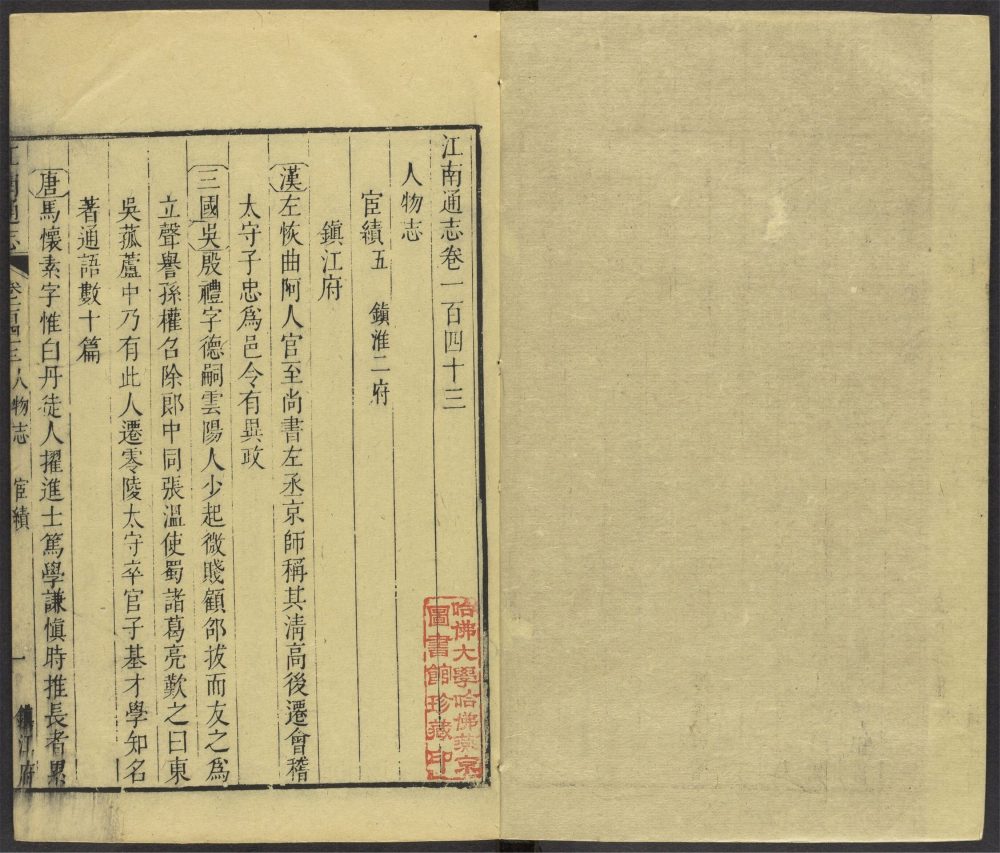 江南通志卷一百四十三
人物志
宦績五　鎮淮二府
鎮江府
漢左恢曲阿人官至尚書左丞京師稱其淸高後遷會稽
太守子忠爲邑令有異政
三國吳殷禮字德嗣雲陽人少起微賤顧邵拔而友之爲
立聲譽孫權召除郎中同張溫使蜀諸葛亮歎之曰東
吳菰蘆中乃有此人遷零陵太守卒官子基才學知名
著通語數十篇
唐馬懷素字惟白丹徒人擢進士篤學謙愼時推長者累
江南通志　卷一百四十三　人物志　宦績　一　鎮江府
哈佛大學哈佛燕京
圖書館珍藏印